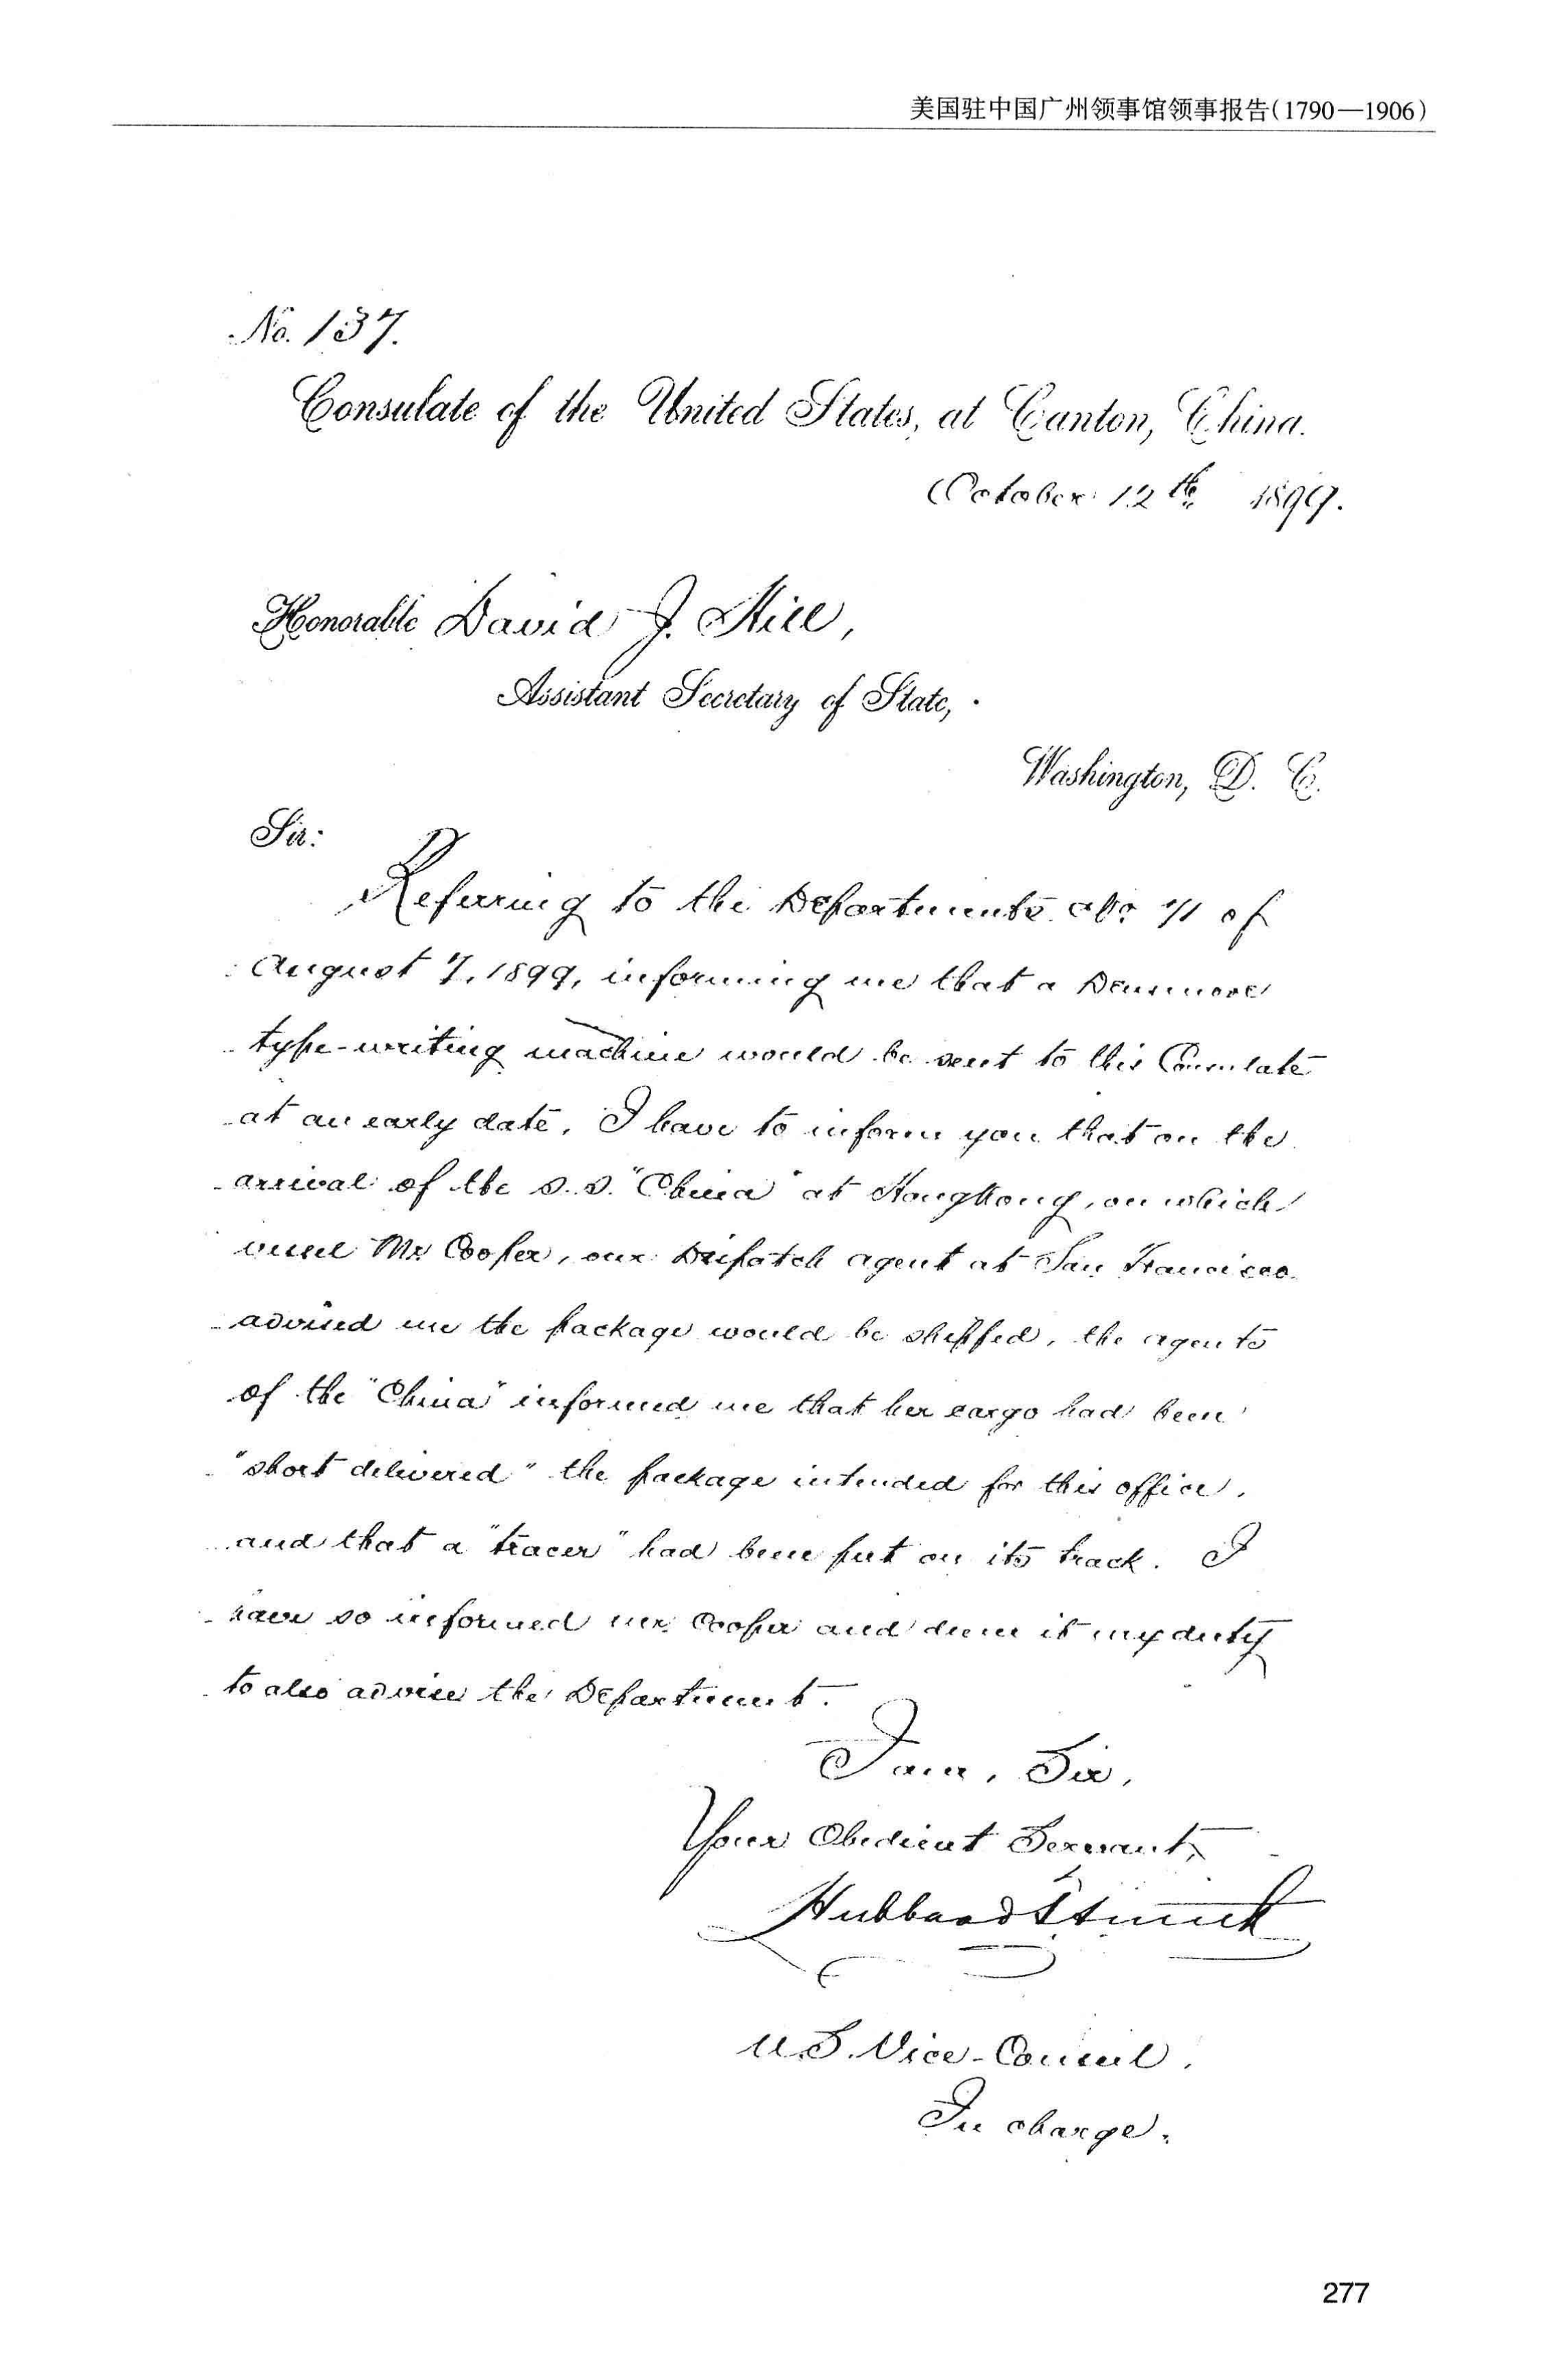 美国驻中国广州领事馆领事报告(1790—1906)
No. 137.
Consulate of the United States, at Canton, China.
October 12th 1899.
Honorable David J. Hill,
Assistant Secretary of State,
Washington, D. C.
Sir:
Referring to the Departments No 71 of
August 7, 1899, informing me that a Densmore
type-writing machine would be sent to this Consulate
at an early date, I have to inform you that on the
arrival of the s.s. "China" at Hongkong, on which
vessel Mr Cooper, our Despatch agent at San Francisco
advised me the package would be shipped, the agents
of the "China" informed me that her cargo had been
"short delivered" the package intended for this office,
and that a "tracer" had been put on its track. I
have so informed Mr. Cooper and deem it my duty
to also advise the Department.
I am, Sir,
Your Obedient Servant,
Hubbard T. Smith
U.S. Vice-Consul.
In charge.
277